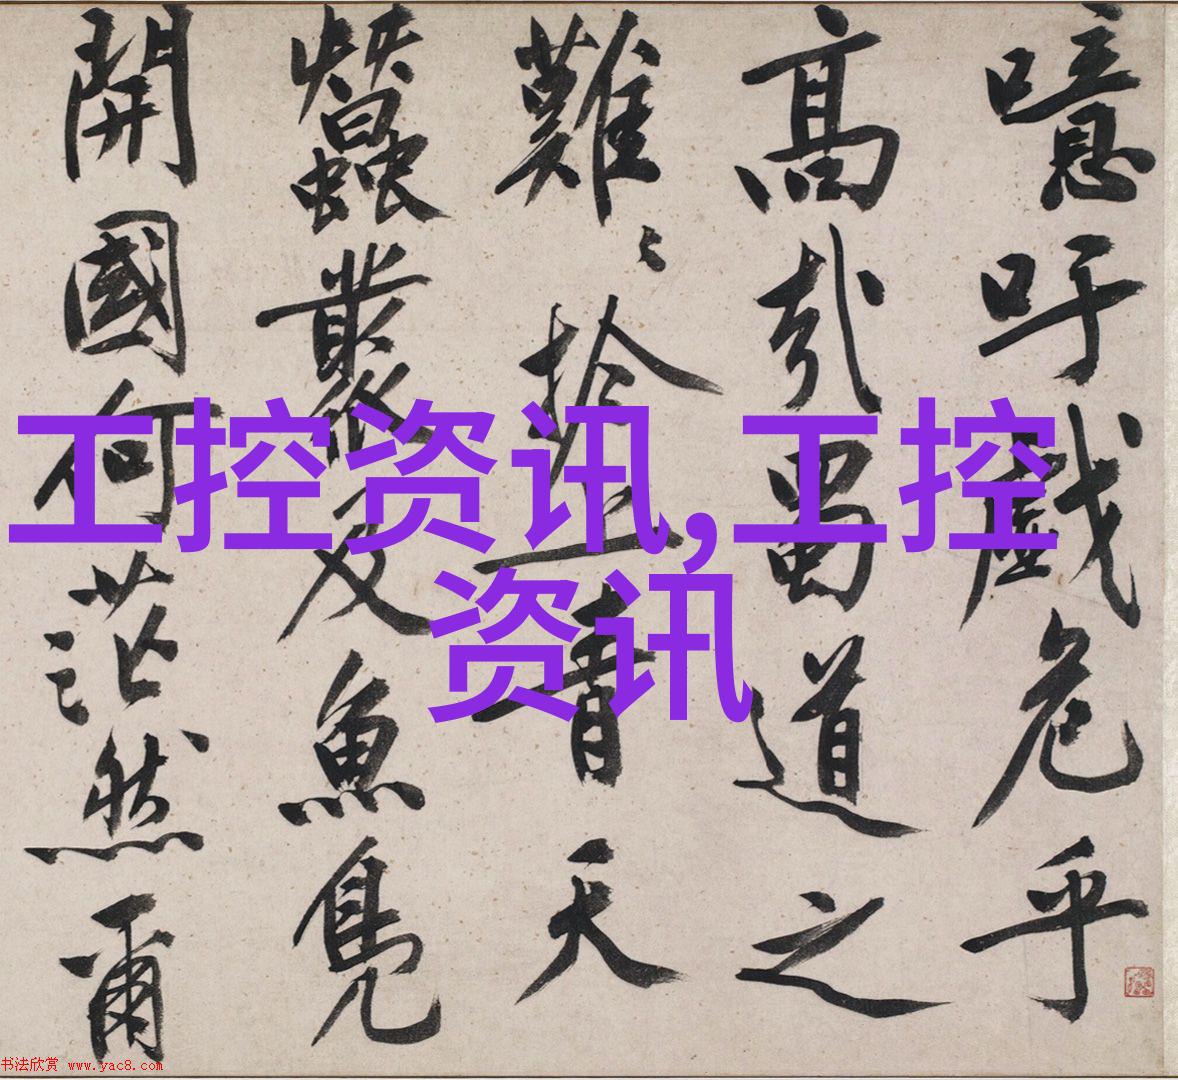 噫吁戲危乎
高哉蜀道之
難〻於上青天
蠶叢及魚鳧
開國何茫然爾
工控资讯,工控
资讯
书法欣赏 www.yac8.com